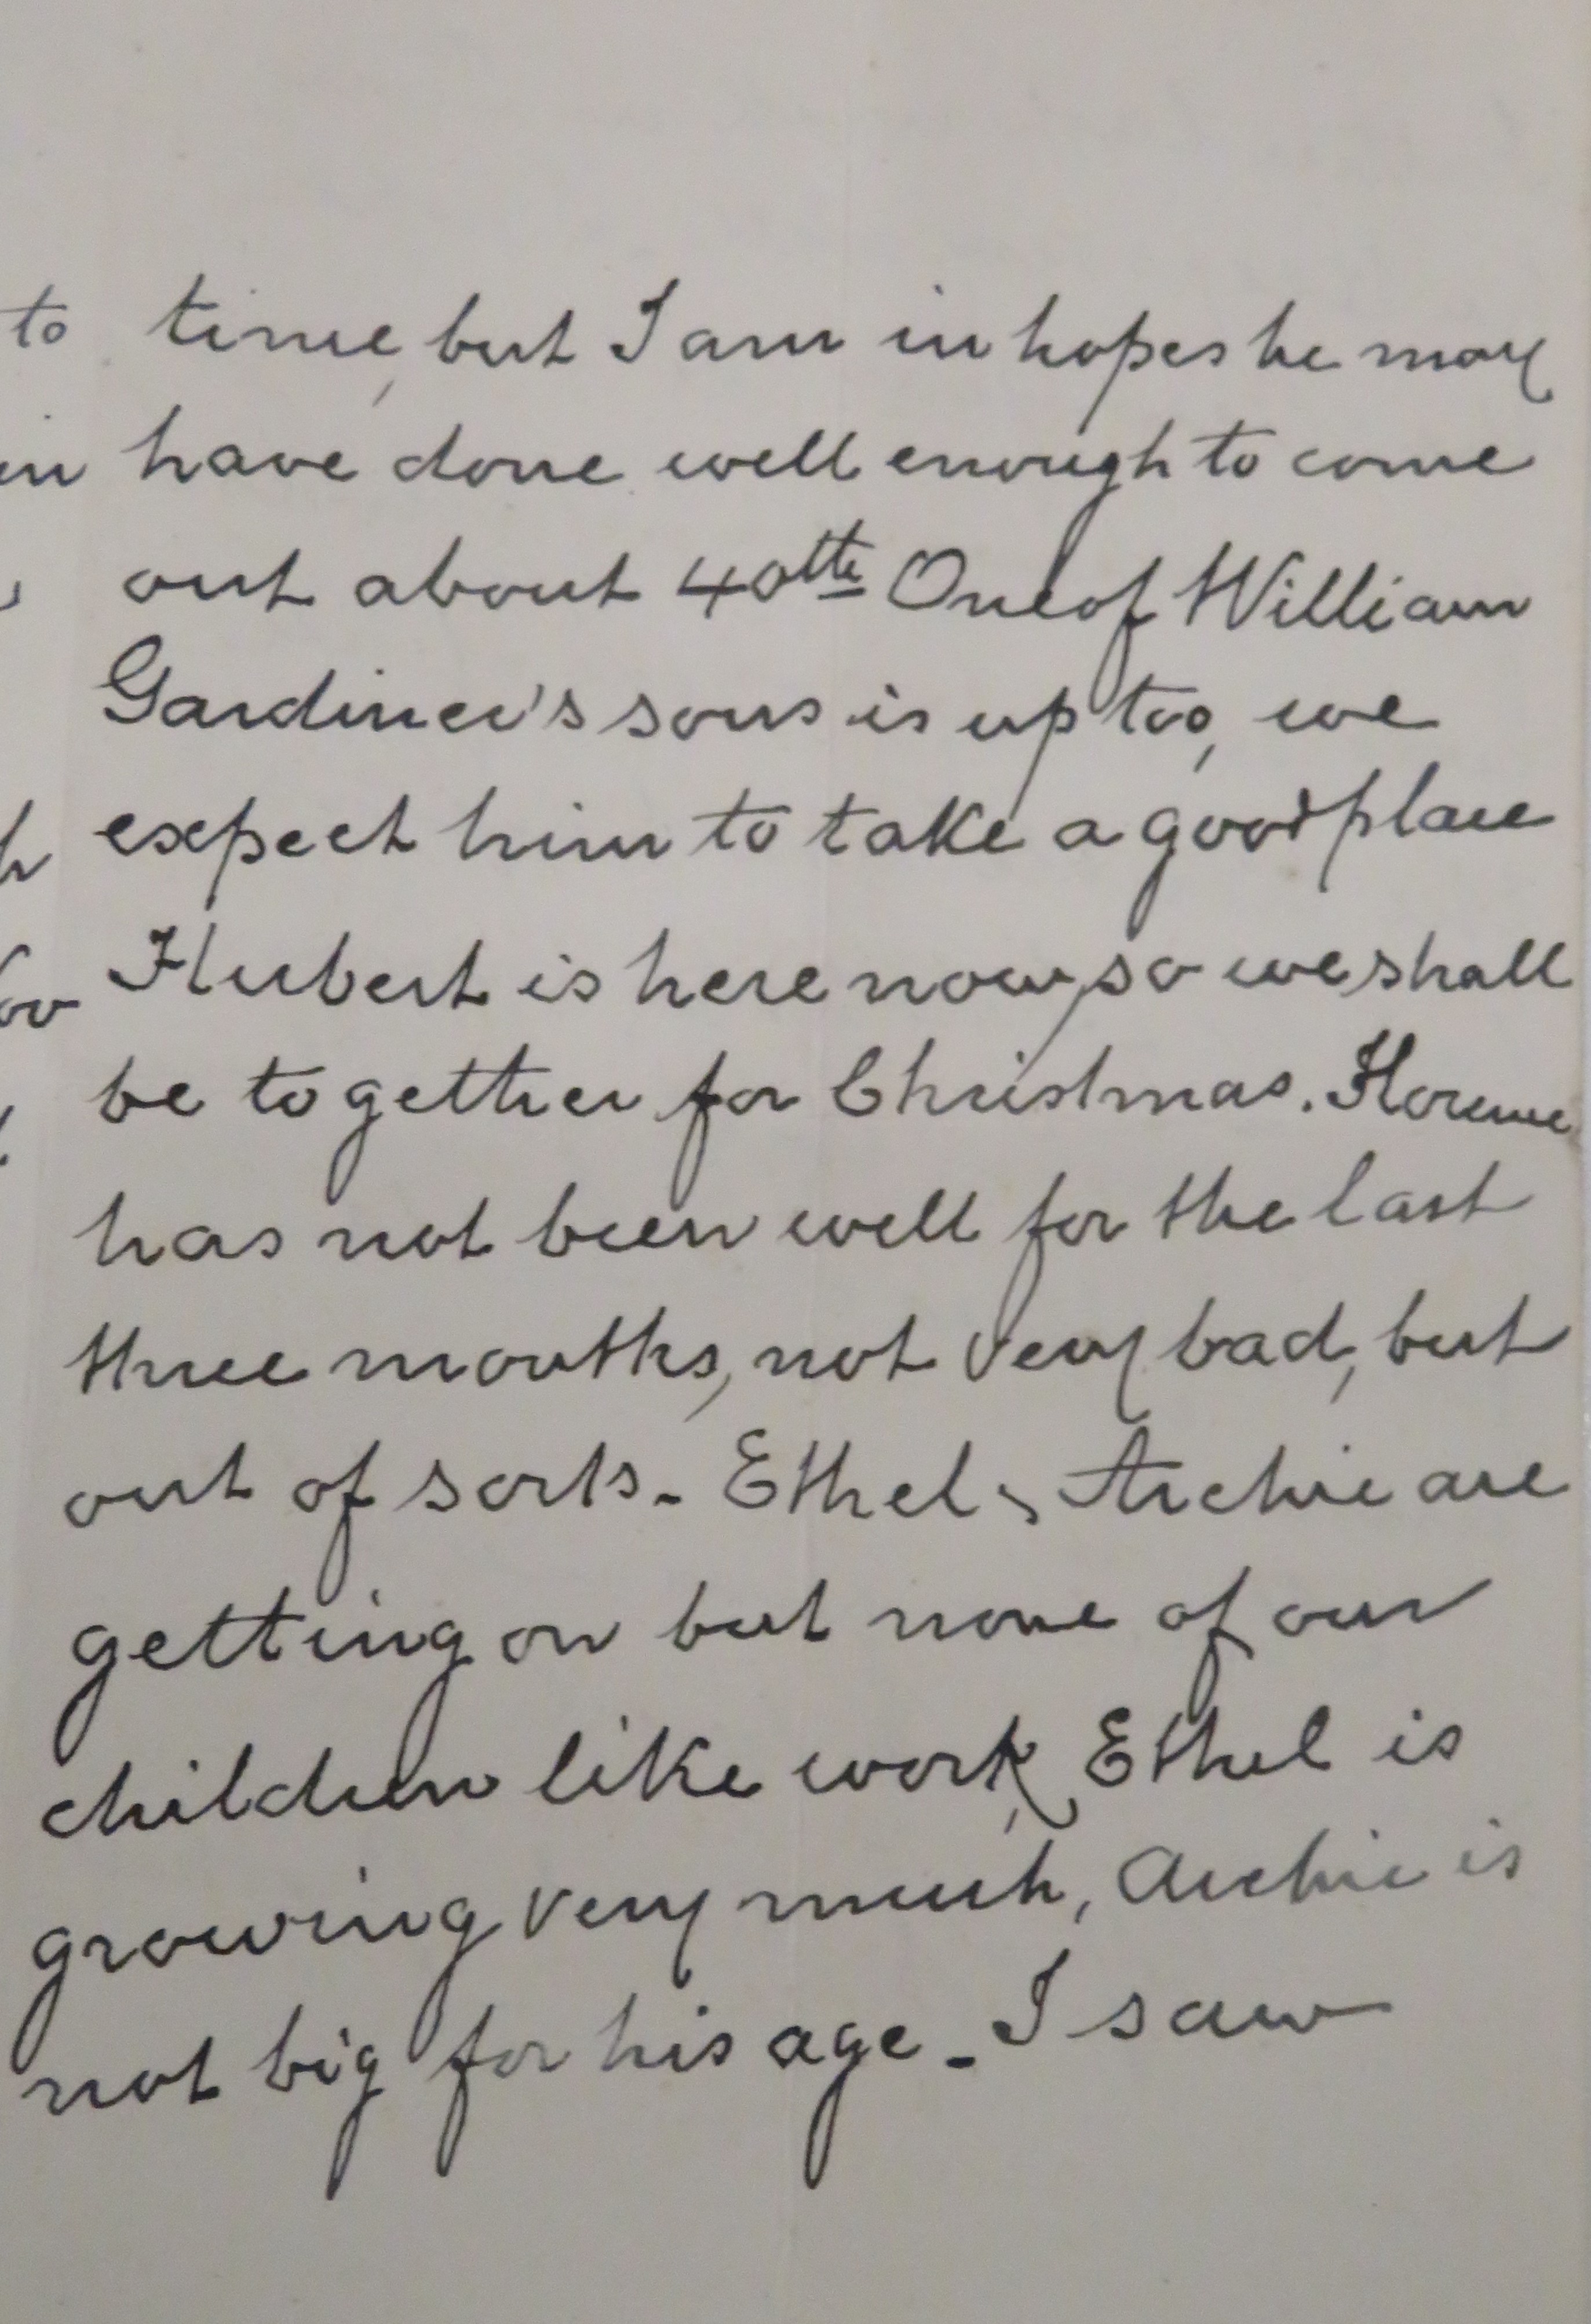 to time, but I am in hopes he may
have done well enough to come
out about 40th One of William
Gardiner's sons is up too, we
expect him to take a good place
Hubert is here now, so we shall
be together for Christmas. Florence
has not been well for the last
three months, not very bad, but
out of sorts - Ethel & Archie are
getting on but none of our
children like work, Ethel is
growing very much, Archie is
not big for his age - I saw